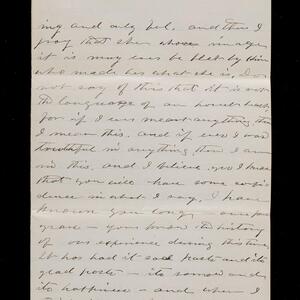 ing and only pol. and thus I
pray that she whose image
it is may ever be blest by Him
who made her what she is. Do
not say of this that it is not
the language of an honest heart
for if I ever meant anything then
I mean this. and if ever I was
truthful in anything then I am
in this. and I believe yes I know
that you will have some confi-
dence in what I say. I have
known you long
grace - you know the history
of our experience during this time.
It has had it sad parts and its
glad parts - its sorrow and
its happiness - and when I